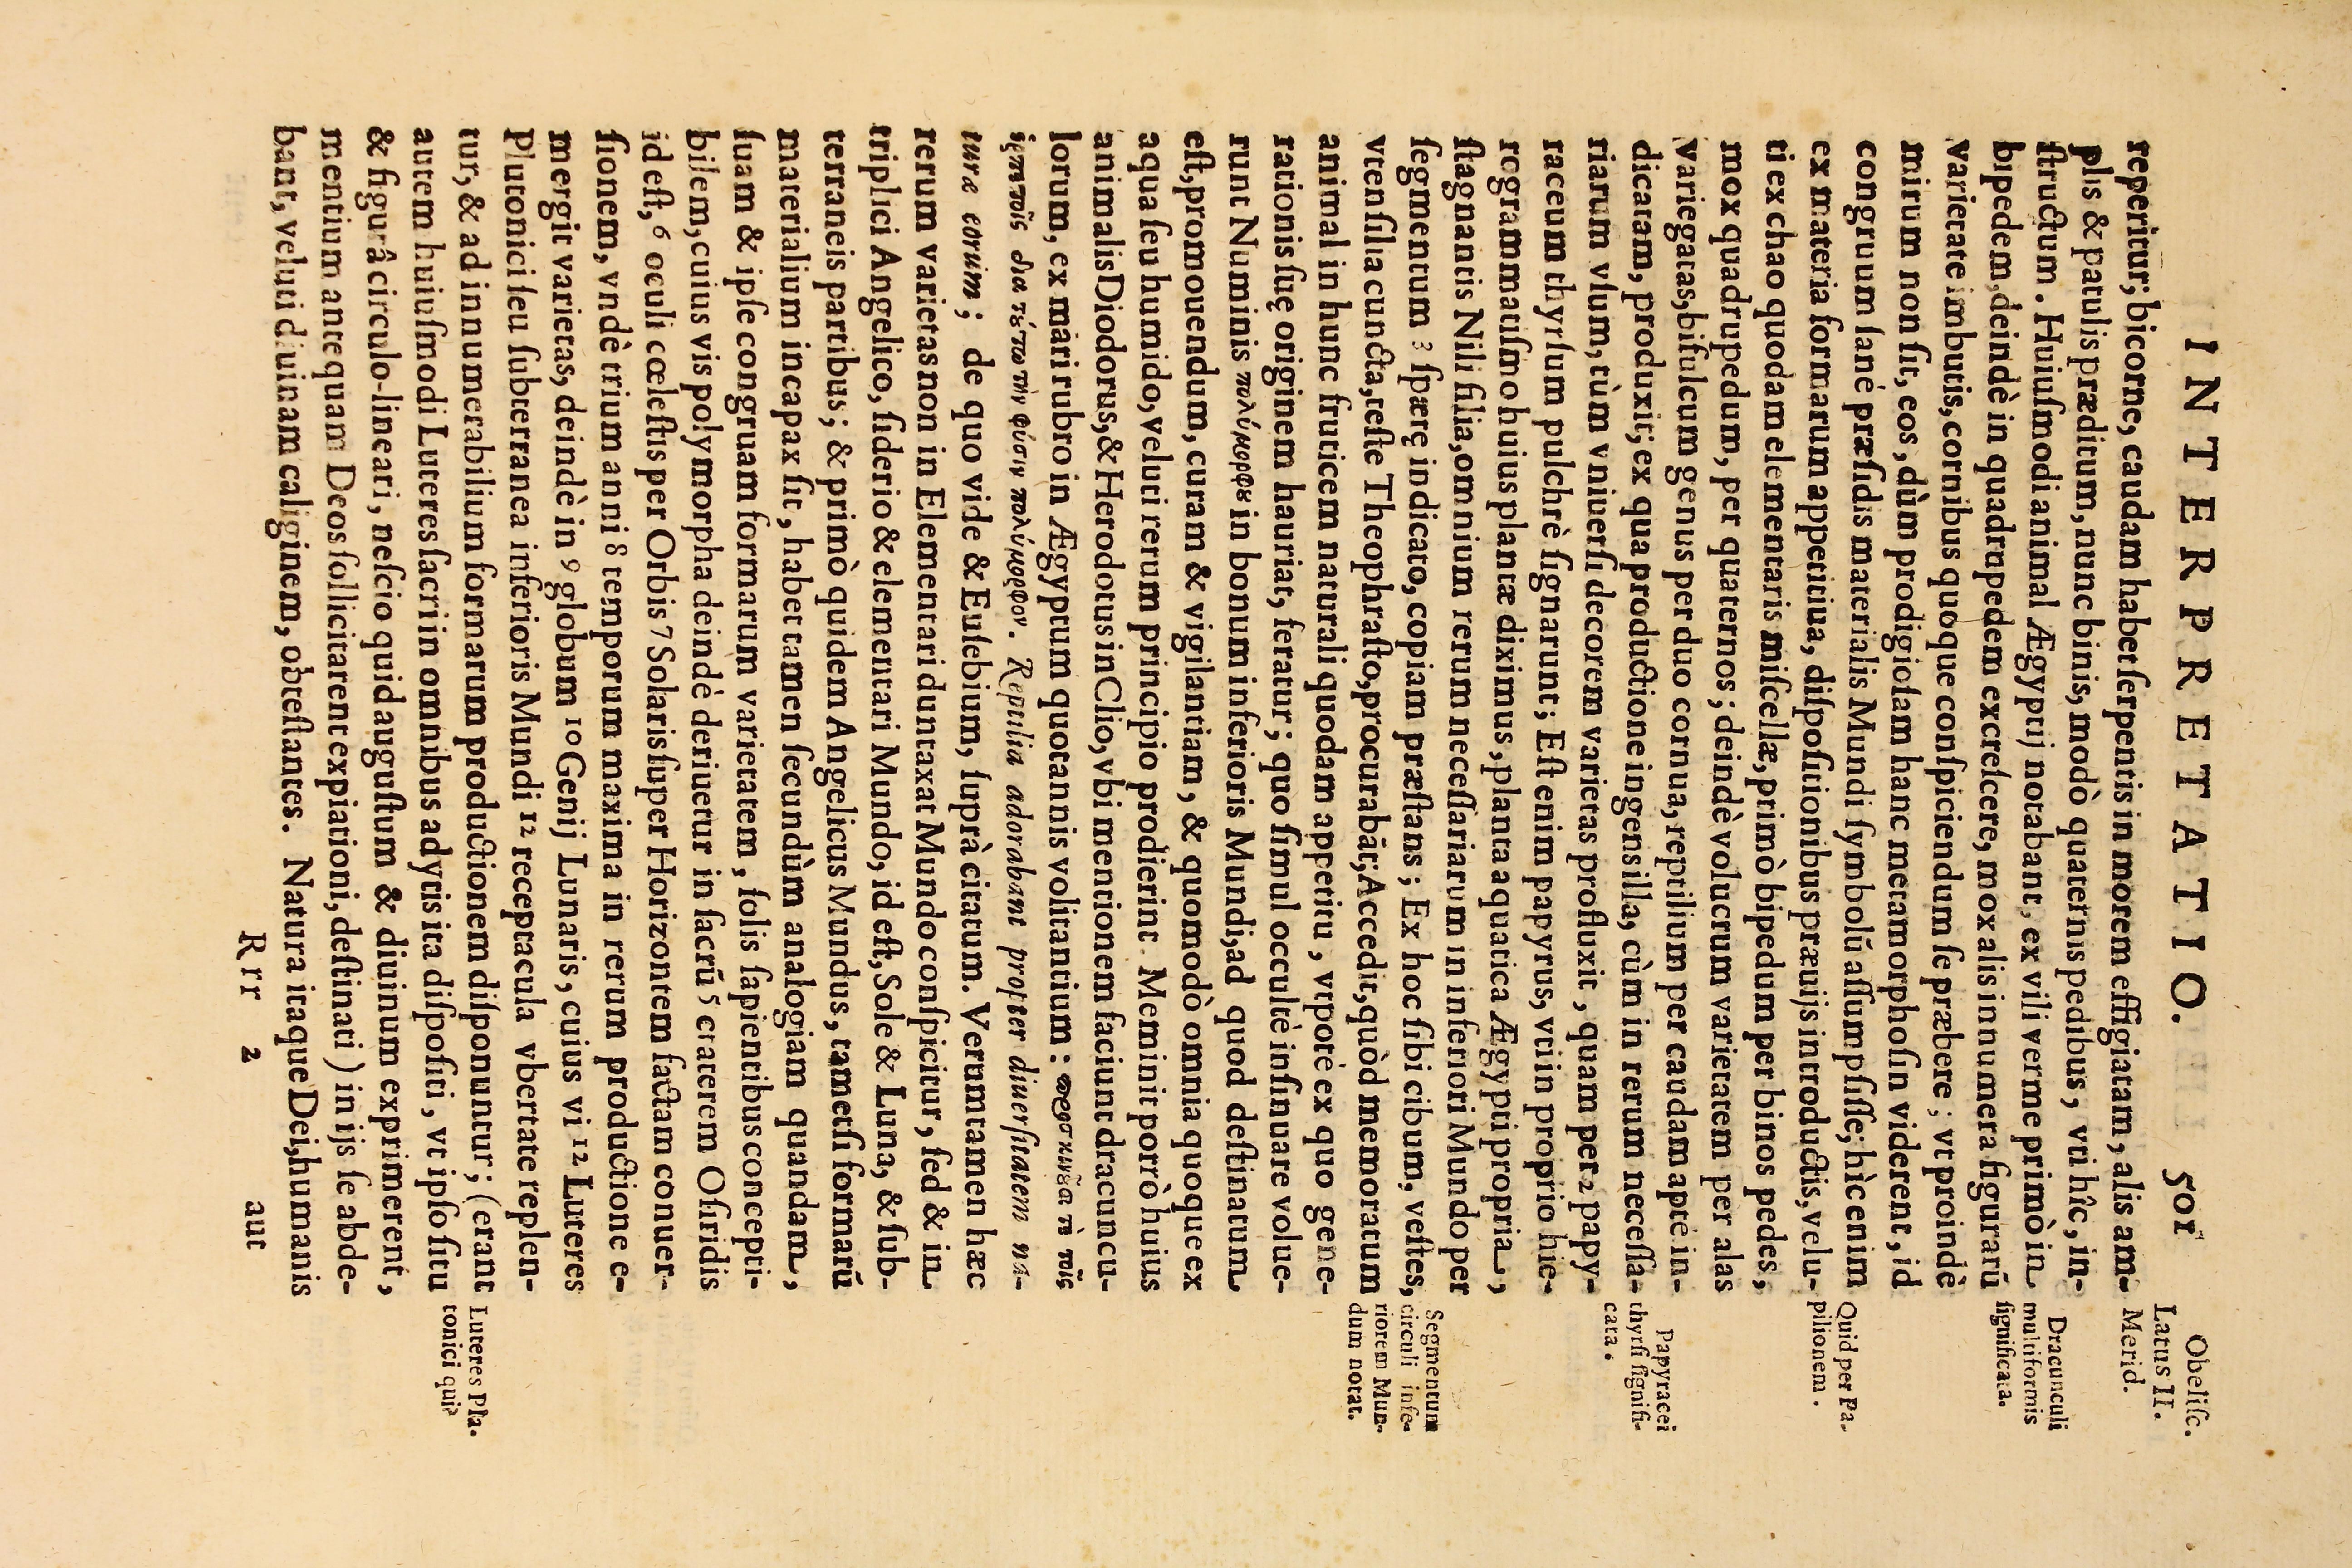 INTERPRETATIO. 501
Obeliſc.
Latus II.
Merid.
reperitur; bicorne, caudam habet ſerpentis in morem effigiatam, alis am-
plis & patulis præditum, nunc binis, modò quaternis pedibus, vti hîc, in-
ſtructum. Huiuſmodi animal Ægyptij notabant, ex vili verme primò in
bipedem, deindè in quadrupedem excreſcere, mox alis innumera figurarũ
varietate imbutis, cornibus quoque conſpiciendum ſe præbere; vt proindè
mirum non ſit, eos, dùm prodigioſam hanc metamorphoſin viderent, id
congruum ſanè præſidis materialis Mundi ſymbolũ aſſumpſiſſe; hìc enim
ex materia formarum appetitiua, diſpoſitionibus præuijs introductis, velu-
ti ex chao quodam elementaris miſcellæ, primò bipedum per binos pedes,
mox quadrupedum, per quaternos; deindè volucrum varietatem per alas
variegatas, biſulcum genus per duo cornua, reptilium per caudam aptè in-
dicatam, produxit; ex qua productione ingens illa, cùm in rerum neceſſa-
riarum vſum, tùm vniuerſi decorem varietas profluxit, quam per 2 papy-
raceum thyrſum pulchrè ſignarunt; Eſt enim papyrus, vti in proprio hie-
rogrammatiſmo huius plantæ diximus, planta aquatica Ægypti propria,
ſtagnantis Nili filia, omnium rerum neceſſariarum in inferiori Mundo per
ſegmentum 3 ſpærę indicato, copiam præſtans; Ex hoc ſibi cibum, veſtes,
vtenſilia cuncta, teſte Theophraſto, procurabãt; Accedit, quòd memoratum
animal in hunc fruticem naturali quodam appetitu, vtpotè ex quo gene-
rationis ſuę originem hauriat, feratur; quo ſimul occultè inſinuare volue-
runt Numinis πολύμορφȣ in bonum inferioris Mundi, ad quod deſtinatum
eſt, promouendum, curam & vigilantiam, & quomodò omnia quoque ex
aqua ſeu humido, veluti rerum principio prodierint. Meminit porrò huius
animalis Diodorus, & Herodotus in Clio, vbi mentionem faciunt dracuncu-
lorum, ex mari rubro in Ægyptum quotannis volitantium: τὸ τοῖς
ἑρπετοῖς δια τȣ́τω τὴν φύσιν πολύμορφον. Reptilia adorabant propter diuerſitatem na-
turæ eorum; de quo vide & Euſebium, ſuprà citatum. Verumtamen hæc
rerum varietas non in Elementari duntaxat Mundo conſpicitur, ſed & in
triplici Angelico, ſiderio & elementari Mundo, id eſt, Sole & Luna, & ſub-
terraneis partibus; & primò quidem Angelicus Mundus, tametſi formarũ
materialium incapax ſit, habet tamen ſecundùm analogiam quandam,
ſuam & ipſe congruam formarum varietatem, ſolis ſapientibus concepti-
bilem, cuius vis polymorpha deindè deriuetur in ſacrũ 5 craterem Oſiridis
id eſt, 6 oculi cœleſtis per Orbis 7 Solaris ſuper Horizontem factam conuer-
ſionem, vndè trium anni 8 temporum maxima in rerum productione e-
mergit varietas, deindè in 9 globum 10 Genij Lunaris, cuius vi 12 Luteres
Plutonici ſeu ſubterranea inferioris Mundi 12 receptacula vbertate replen-
tur, & ad innumerabilium formarum productionem diſponuntur; (erant
autem huiuſmodi Luteres ſacri in omnibus adytis ita diſpoſiti, vt ipſo ſitu
& figurâ circulo-lineari, neſcio quid auguſtum & diuinum exprimerent,
mentium antequam Deos ſollicitarent expiationi, deſtinati) in ijs ſe abde-
bant, veluti diuinam caliginem, obteſtantes. Natura itaque Dei, humanis
Dracunculi
multiformis
ſignificata.
Quid per Pa-
pilionem.
Papyracei
thyrſi ſignifi-
cata.
Segmentum
circuli infe-
riorem Mun-
dum notat.
Luteres Plu-
tonici qui?
Rrr 2 aut